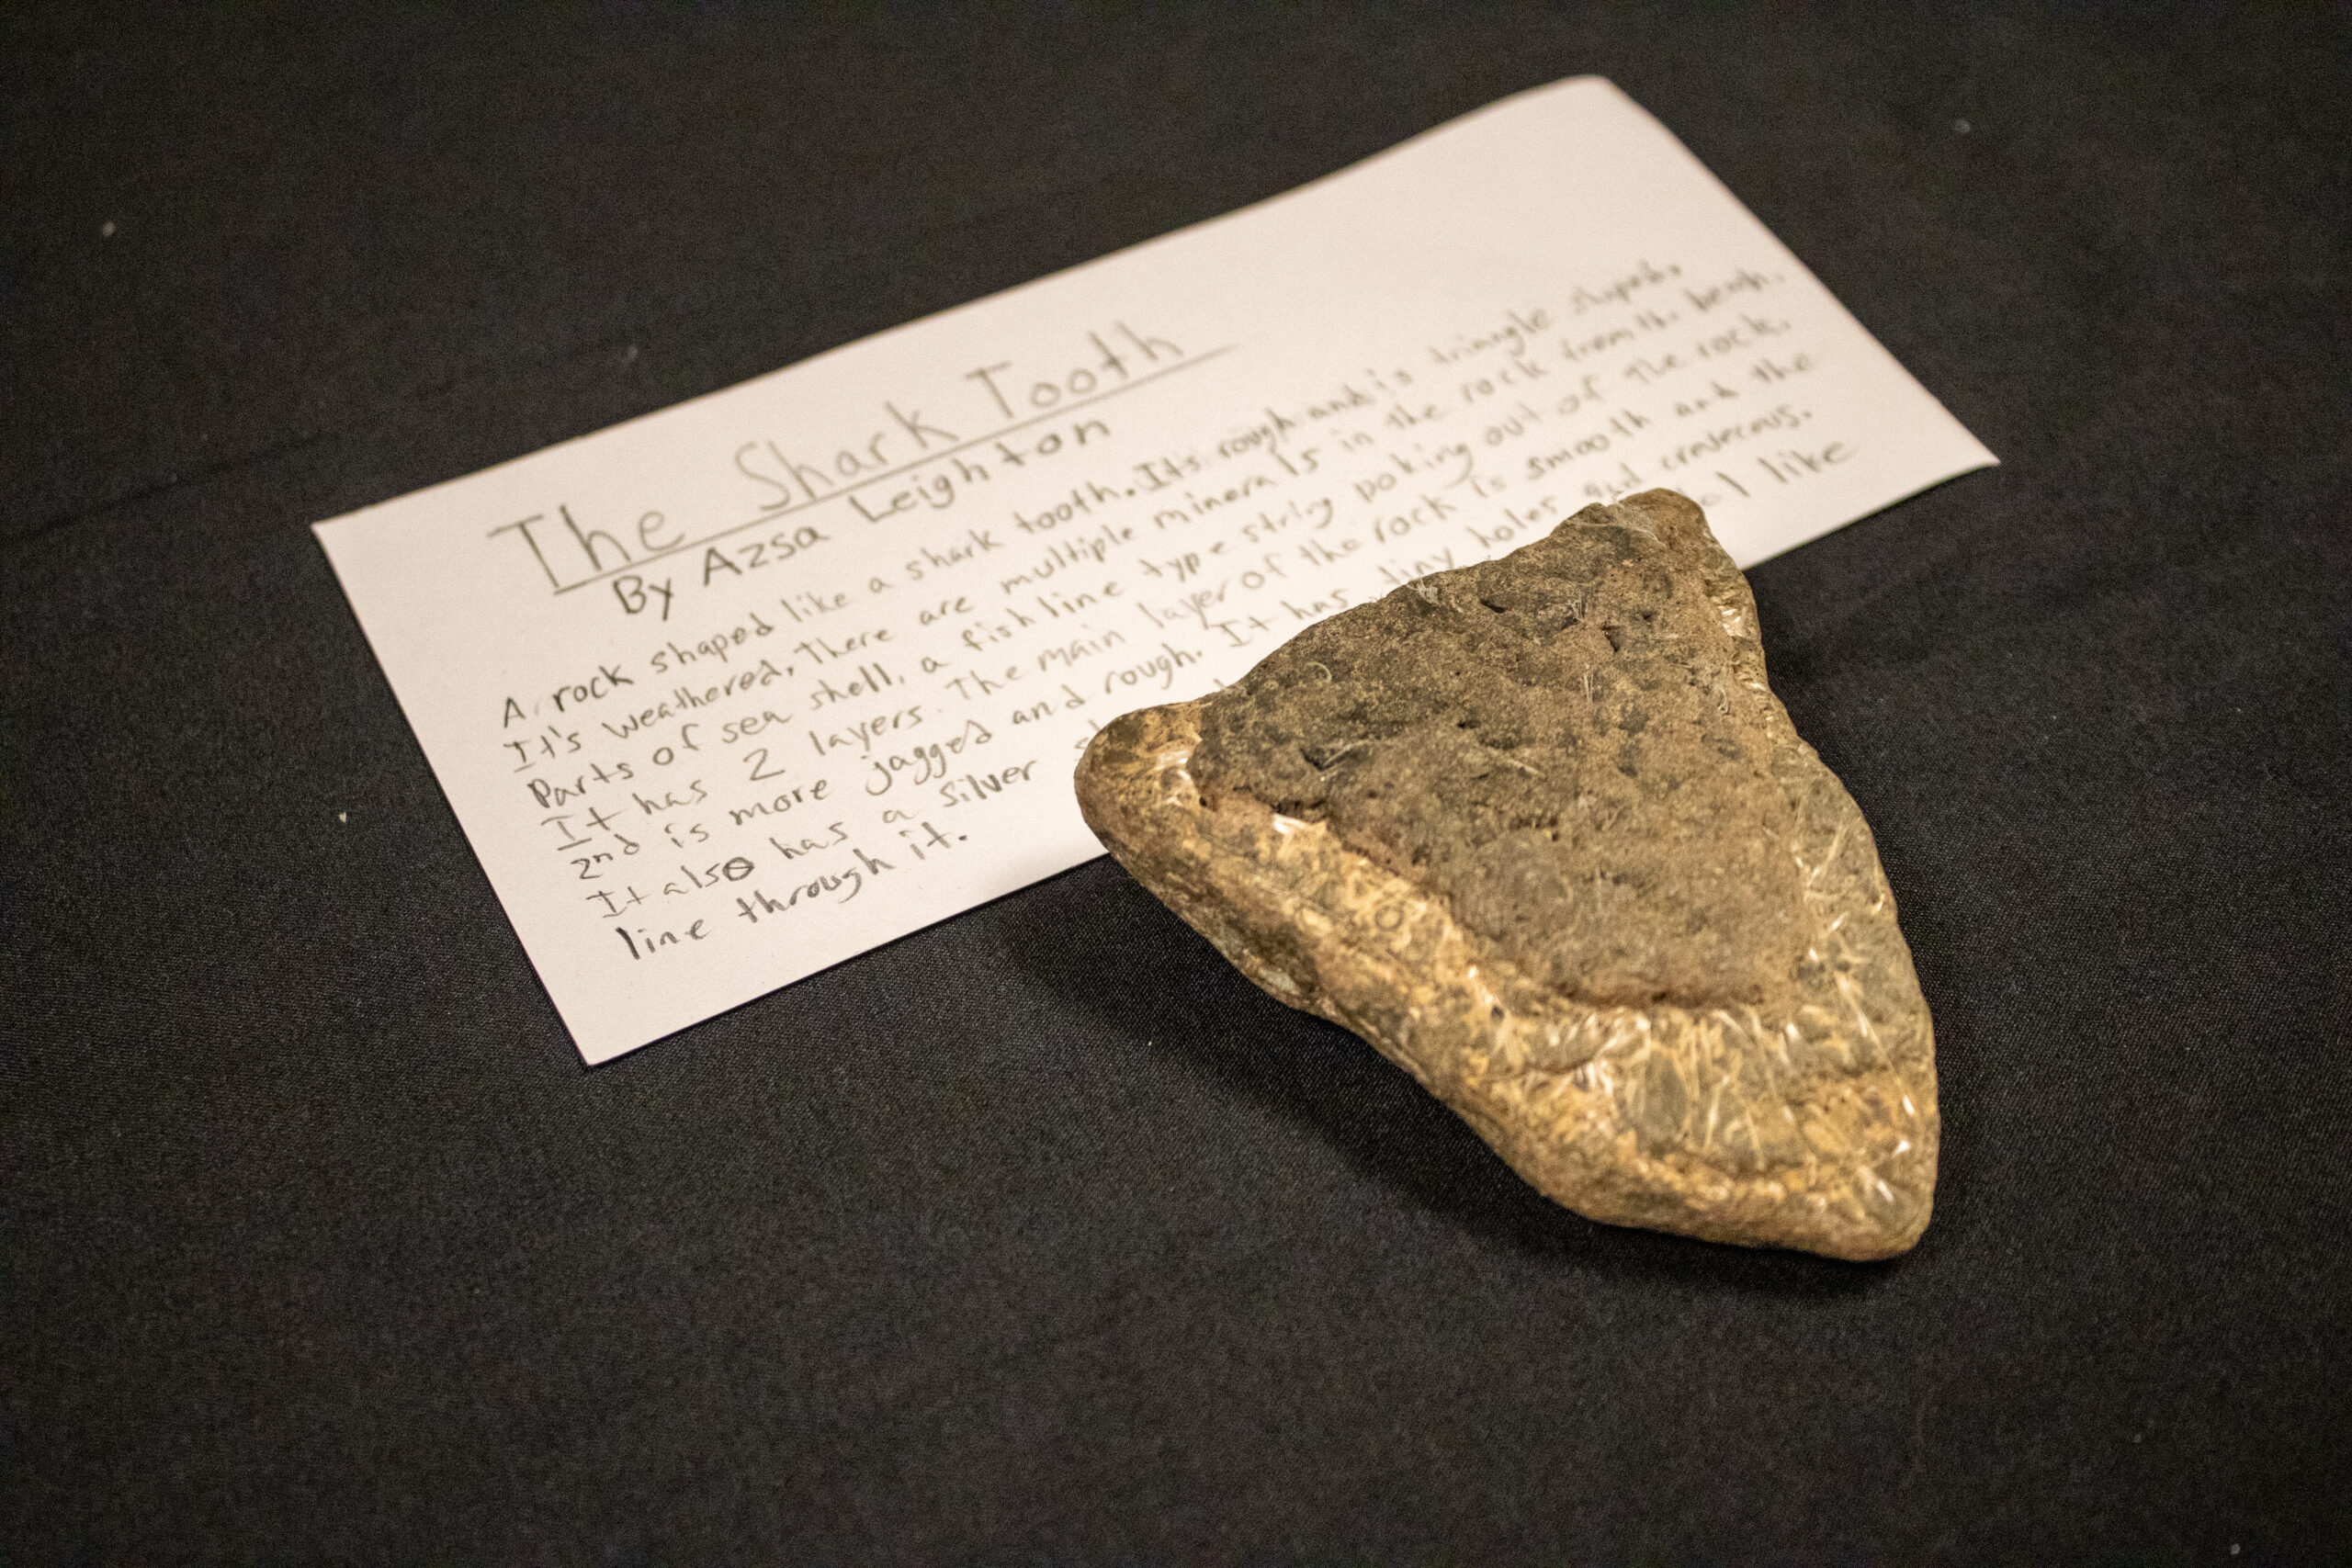 The Shark Tooth
By Azsa Leighton
A rock shaped like a shark tooth. It's rough and is triangle shaped.
It's weathered, there are multiple minerals in the rock from the beach.
Parts of sea shell, a fish line type string poking out of the rock.
It has 2 layers. The main layer of the rock is smooth and the
2nd is more jagged and rough. It has tiny holes and craterous.
It also has a silver like
line through it.